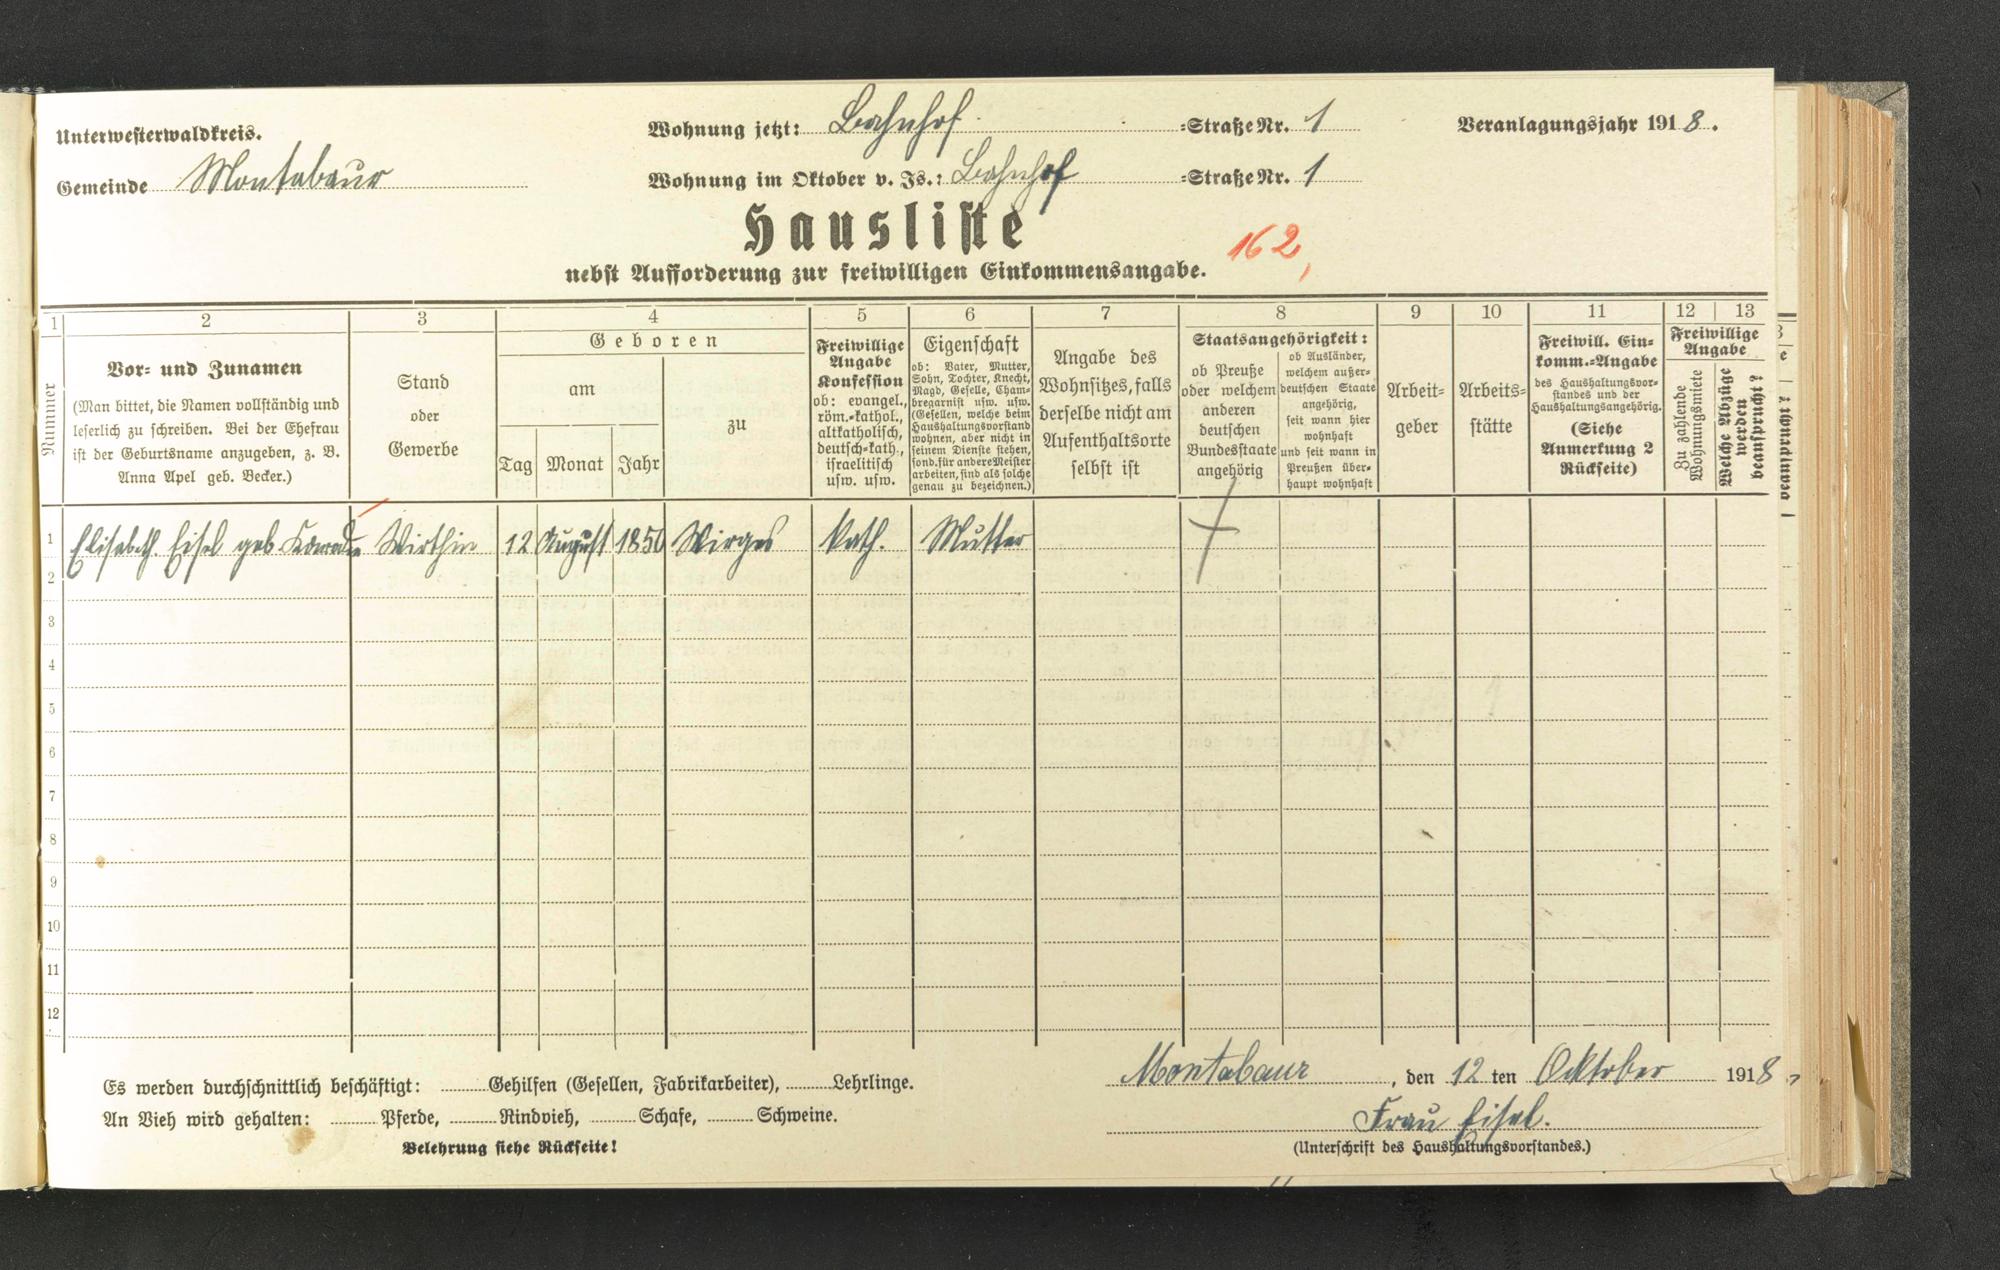 Unterwesterwaldkreis.
Gemeinde Montabaur
Wohnung jetzt: Bahnhof -Straße Nr. 1
Wohnung im Oktober v. Js.: Bahnhof -Straße Nr. 1
Veranlagungsjahr 1918.
Hausliste
162,
nebst Aufforderung zur freiwilligen Einkommensangabe.
1 2 3 4 5 6 7 8 9 10 11 12 13
Nummer
Vor- und Zunamen
(Man bittet, die Namen vollständig und
leserlich zu schreiben. Bei der Ehefrau
ist der Geburtsname anzugeben, z. B.
Anna Apel geb. Becker.)
Stand
oder
Gewerbe
Geboren
am
Tag Monat Jahr
zu
Freiwillige
Angabe
Konfession
ob: evangel.,
röm.-kathol.,
altkatholisch,
deutsch-kath.,
israelitisch
usw. usw.
Eigenschaft
ob: Vater, Mutter,
Sohn, Tochter, Knecht,
Magd, Geselle, Cham-
bregarnist usw. usw.
(Gesellen, welche beim
Haushaltungsvorstand
wohnen, aber nicht in
seinem Dienste stehen,
sond. für andere Meister
arbeiten, sind als solche
genau zu bezeichnen.)
Angabe des
Wohnsitzes, falls
derselbe nicht am
Aufenthaltsorte
selbst ist
Staatsangehörigkeit:
ob Preuße
oder welchem
anderen
deutschen
Bundesstaate
angehörig
ob Ausländer,
welchem außer-
deutschen Staate
angehörig,
seit wann hier
wohnhaft
und seit wann in
Preußen über-
haupt wohnhaft
Arbeit-
geber
Arbeits-
stätte
Freiwill. Ein-
komm.-Angabe
des Haushaltungsvor-
standes und der
Haushaltungsangehörig.
(Siehe
Anmerkung 2
Rückseite)
Freiwillige
Angabe
Zu zahlende
Wohnungsmiete
Welche Abzüge
werden
beansprucht?
1 Elisabeth Eisel geb Wirthin 12 August 1850 Wirges kath. Mutter
2
3
4
5
6
7
8
9
10
11
12
Es werden durchschnittlich beschäftigt: Gehilfen (Gesellen, Fabrikarbeiter), Lehrlinge.
An Vieh wird gehalten: Pferde, Rindvieh, Schafe, Schweine.
Belehrung siehe Rückseite!
Montabaur, den 12 ten Oktober 1918,
Frau Eisel.
(Unterschrift des Haushaltungsvorstandes.)